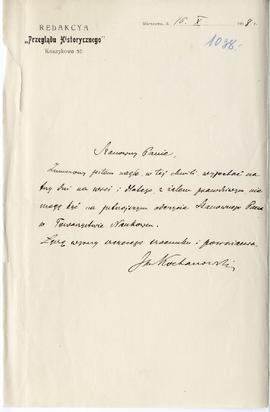 REDAKCYA
"Przeglądu Historycznego"
Koszykowa 10.
Warszawa, d. 16. X 1908 r.
1038.
Szanowny Panie,
Zmuszony jestem nagle, w tej chwili, wyjechać na
trzy dni na wieś i dlatego z żalem prawdziwym nie
mogę być na jutrzejszym odczycie Szanownego Pana
w Towarzystwie Naukowem.
Łączę wyrazy szczerego szacunku i poważania
Jan Kochanowski